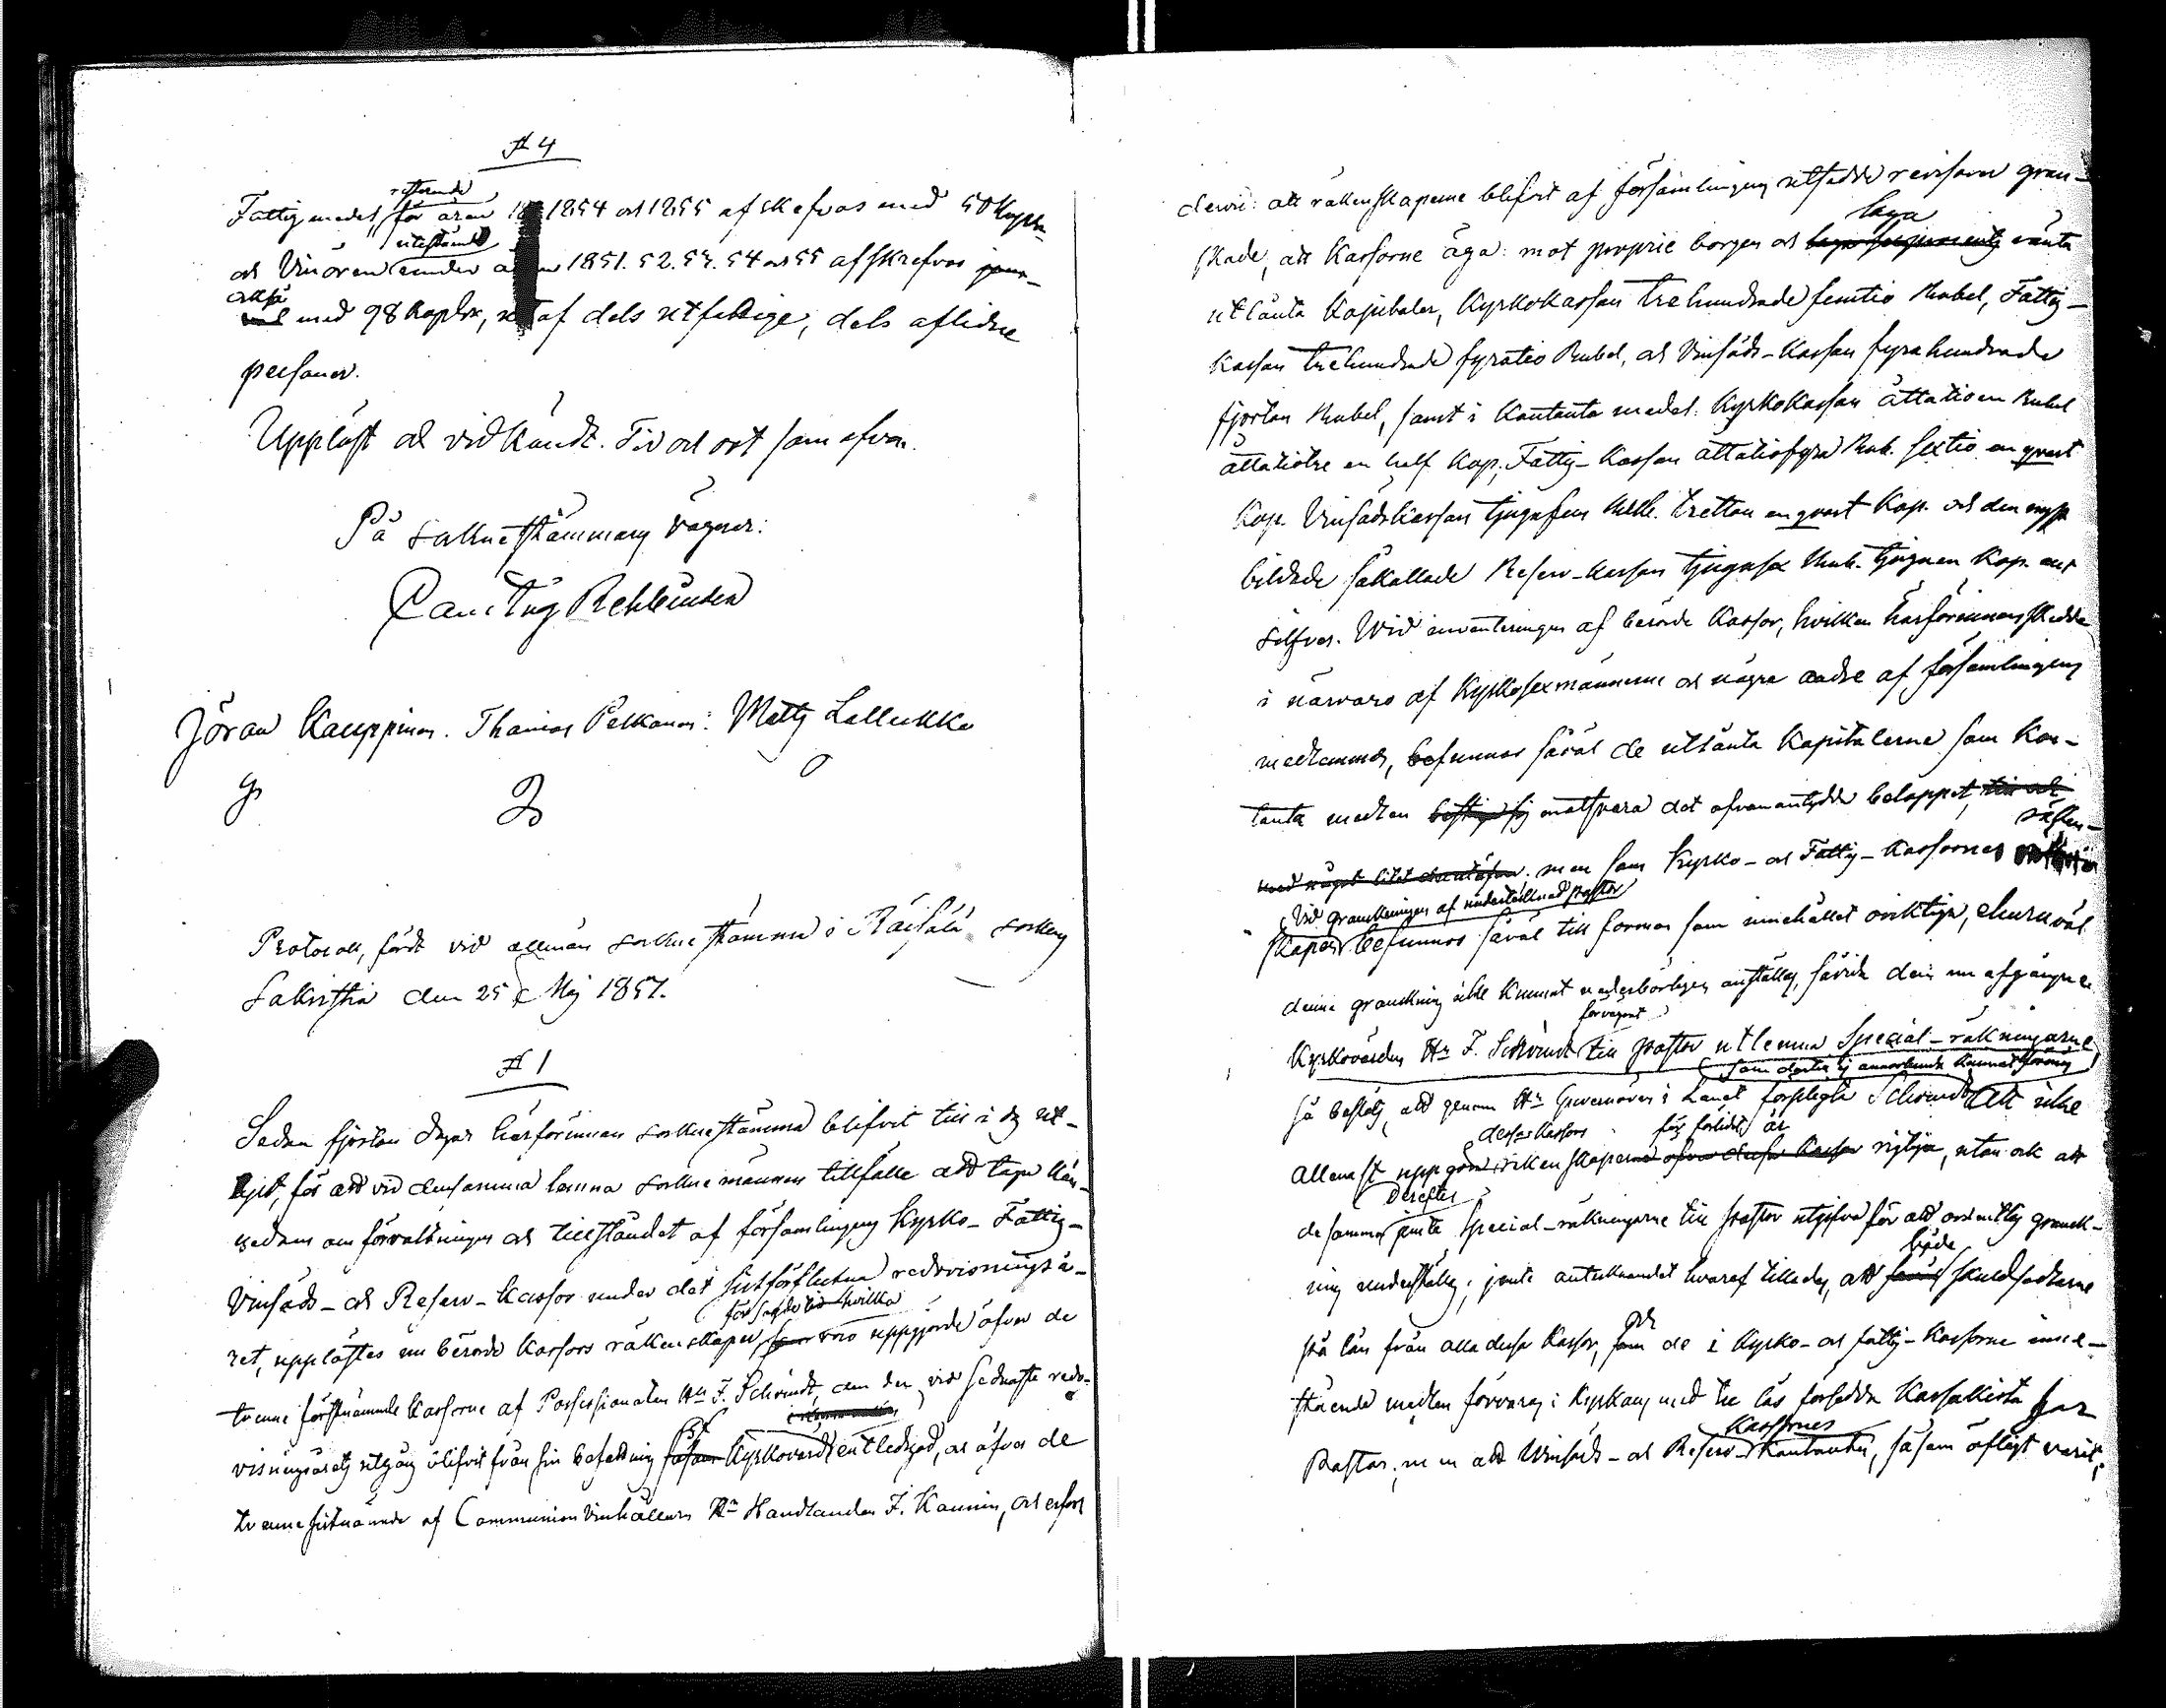 § 4
resterande
Fattigmedel för åren 1854 och 1855 afskrefvos med 50 Kop Sr
utestående
och Vinören under åren 1851. 52. 53. 54 och 55 afskrefvos
också
med 98 Kop Sr, af dels utfattige, dels aflidne
personer.
Uppläst och vidkändt. Tid och ort som ofvan.
På Socknestämmans vägnar:
Jöran Kauppinen. Thomas Pelkonen: Matts Lallukka
Protocoll, fördt vid allmän Sockne stämma i Räisälä Sockens
Sakristia den 25 Maj 1857.
§ 1
Sedan fjorton dagar härförinnan sockne stämma blifvit till i dag ut-
lyst, för att vid densamma lemna Sockne männen tillfälle att taga kän-
nedom om förvaltningen och tillståndet af församlingens Kyrko- Fattig-
Vinsäds- och Reserv-Kassor under det sistförflutna redovisningså-
för sagde tid hvilka
ret, upplästes nu berörde Kassors räkenskaper som voro uppgjorde öfver de
tvenne förstnämnde Kassorne af Possessionaten Hr F. Schöindt, den der vid sednaste redo-
visningsårets utgång blifvit från sin befattning såsom Kyrkovärd entledigad, och öfver de
tvenne sistnämnde af Communion Vinhållaren Hr Handlanden F. Kannin, och erfors
deraf: att räkenskaperne blifvit af församlingens utsedde revisorer gran-
laga
skade, att Kassorne äga: mot proprie borgen och ränta
utlånta Kapitaler, Kyrkokassan trehundrade femtio Rubel, Fattig-
Kassan trehundrade fyratio Rubel, och Vinsäds-Kassan fyrahundrade
fjorton Rubel, samt i Kontanta medel: KyrkoKassan åttationen Rubel
åttatiotre en half Kop. Fattig-Kassan åttatiofyra Rub. sextio en qvart
Kop. Vinsädskassan tjugufem Rubl. tretton en qvart Kop. och den nyss
bildade såkallade Reserv-Kassan tjugusex Rub. tjuguen Kop. allt
silfver. Wid inventeringen af berörde Kassor, hvilken härförinnan skedde
i närvaro af Kyrkosexmännerne och några andre af församlingens
medlemmar, befunnos såväl de utlånta Kapitalerne som Kon-
tanta medlen motsvara det ofvanantydde beloppet,
räken-
men som Kyrko- och Fattig-Kassornes
Vid granskningen af undertecknad Pastor
skaper befunnos såväl till formen som innehållet oriktige, ehuruväl
denna granskning icke kunnat vederbörligen anställas, såvida den nu afgångne
förvägrat
Kyrkovärden Hr F. Schöindt till Pastor utlemna Special-räkningarne
som dertill ej annorlunda kunnat
så beslöts, att genom Hr Guvernören i Länet förplägta Schöindt att icke
dessa Kassors för förlidet år
allenast uppgöra räkenskaperne ofvan dessa Kassor riktiga, utan ock att
derefter
desamma jemte special-räkningarne till Pastor utgifva för att ordentlig gransk-
ning underställas; jemte antecknandet hvaraf tillades, att
både
skuldsedlarne
och
på lån från alla dessa Kassor, som de i Kyrko- och Fattig-Kassorne inne-
stående medlen förvaras i Kyrkans med tre lås försedda Kassakista hos
Kassornes
Pastor, men att Vinsäds- och Reserv-Kontanter, såsom öfligt varit,